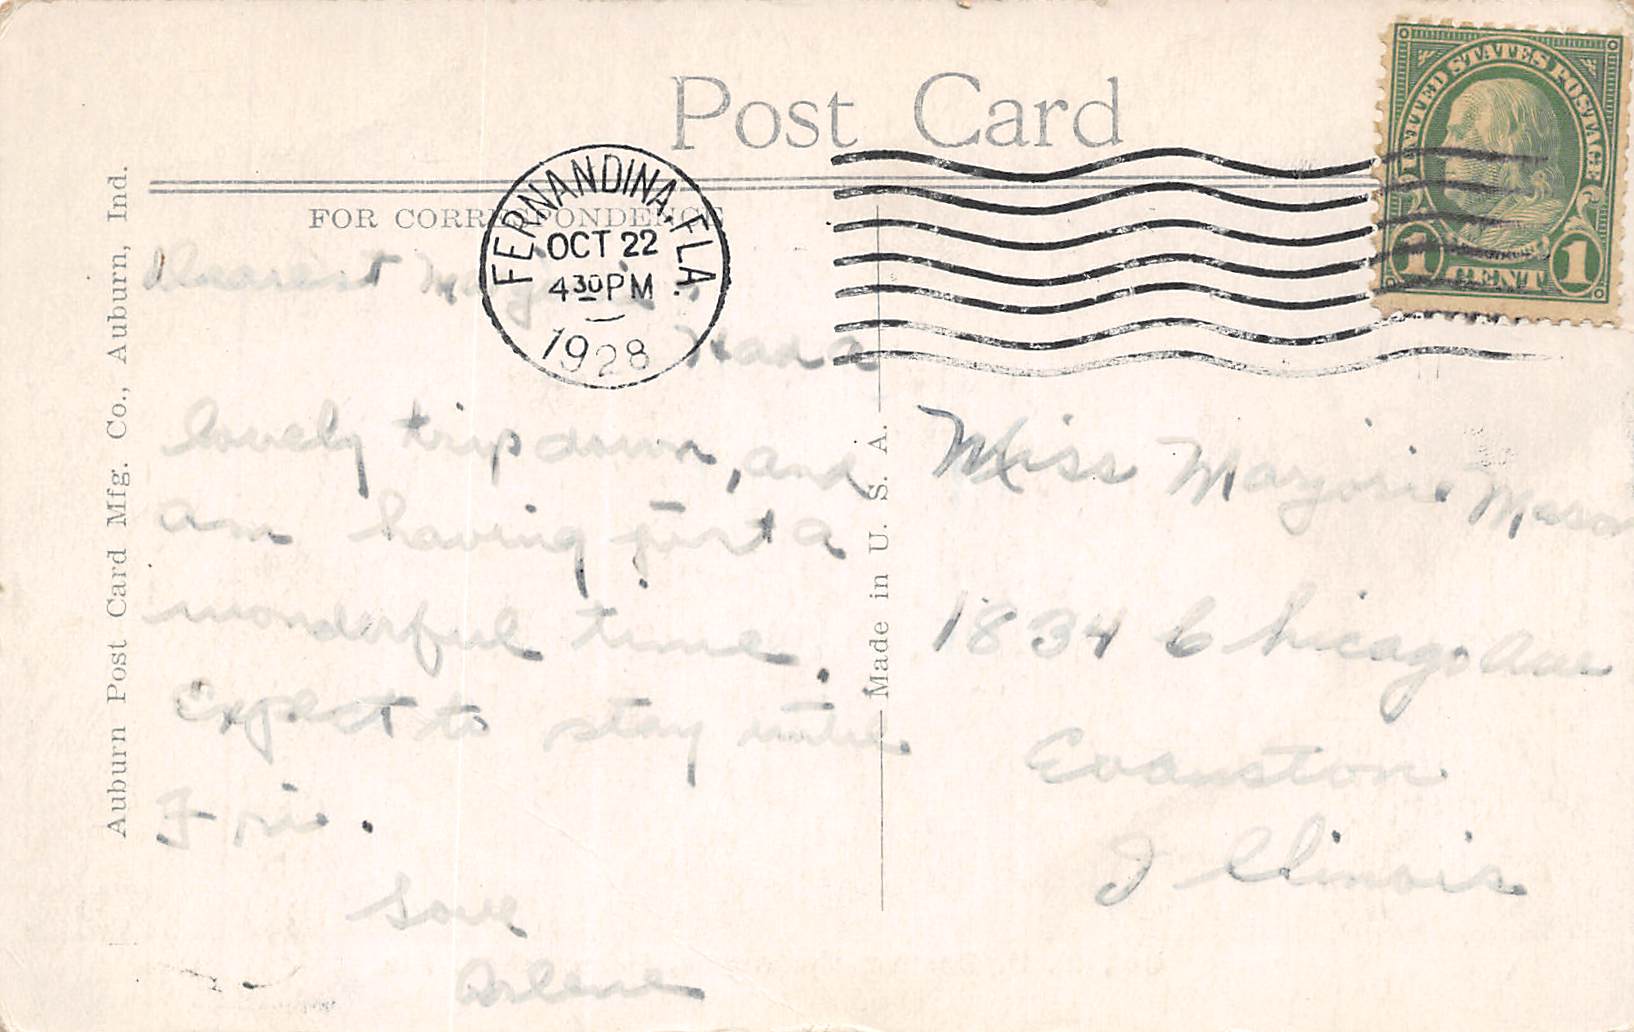 Post Card
FOR CORRESPONDENCE
UNITED STATES POSTAGE
1 CENT 1
FERNANDINA, FLA.
OCT 22
4 30 PM
1928
Auburn Post Card Mfg. Co., Auburn, Ind.
Made in U. S. A.
Dearest Marjorie,
Had a
lovely trip down, and
am having just a
wonderful time.
Expect to stay until
Fri.
Love
Arlene
Miss Marjorie Mason
1834 Chicago Ave
Evanston
Illinois